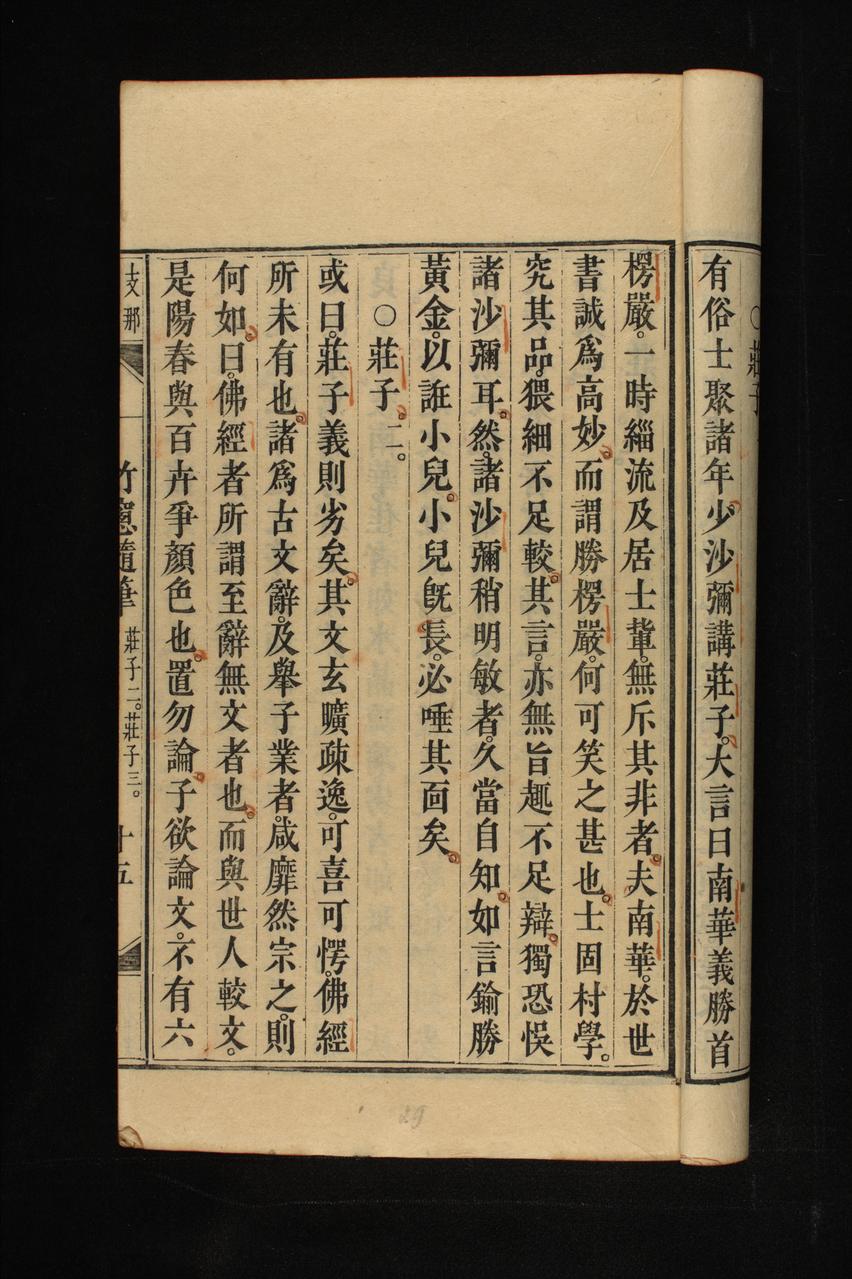 ○莊子
有俗士聚諸年少沙彌講莊子。大言曰南華義勝首
楞嚴。一時緇流及居士輩。無斥其非者。夫南華。於世
書誠爲高妙。而謂勝楞嚴。何可笑之甚也。士固村學。
究其品。猥細不足較。其言。亦無旨趣不足辯。獨恐悞
諸沙彌耳。然。諸沙彌稍明敏者。久當自知。如言鍮勝
黃金。以誑小兒。小兒旣長。必唾其面矣。
○莊子二。
或曰。莊子義則劣矣。其文玄曠疎逸。可喜可愕。佛經
所未有也。諸爲古文辭。及舉子業者。咸靡然宗之。則
何如。曰。佛經者所謂至辭無文者也。而與世人較文。
是陽春與百卉爭顏色也。置勿論。子欲論文。不有六
支那
竹窻隨筆
莊子二。莊子三。
十五
29